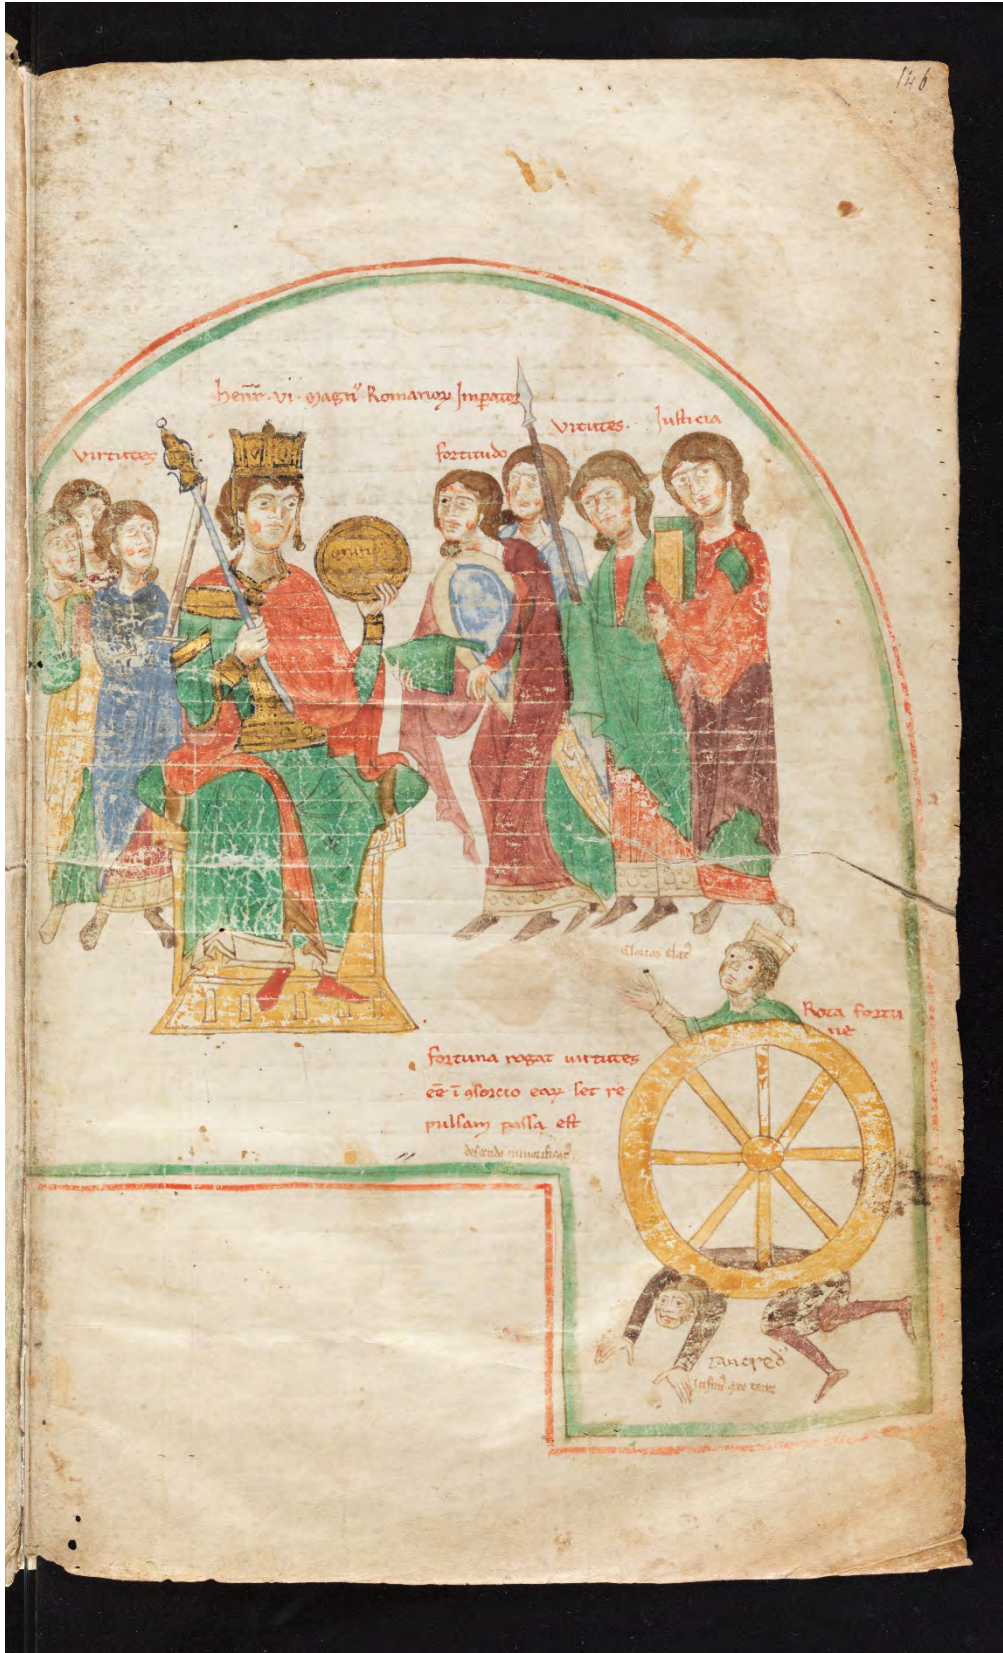 146
henr̄ · vi · magn' Romanoꝝ Imꝑatoꝛ
virtutes
fortitudo
Virtutes ·
Justicia
Glorior elat'
Rota fortu
ne
fortuna rogat virtutes
ēē ī ꝯsorcio eaꝝ · set re
pulsam passa est
descendo minorificat'
Tancred'